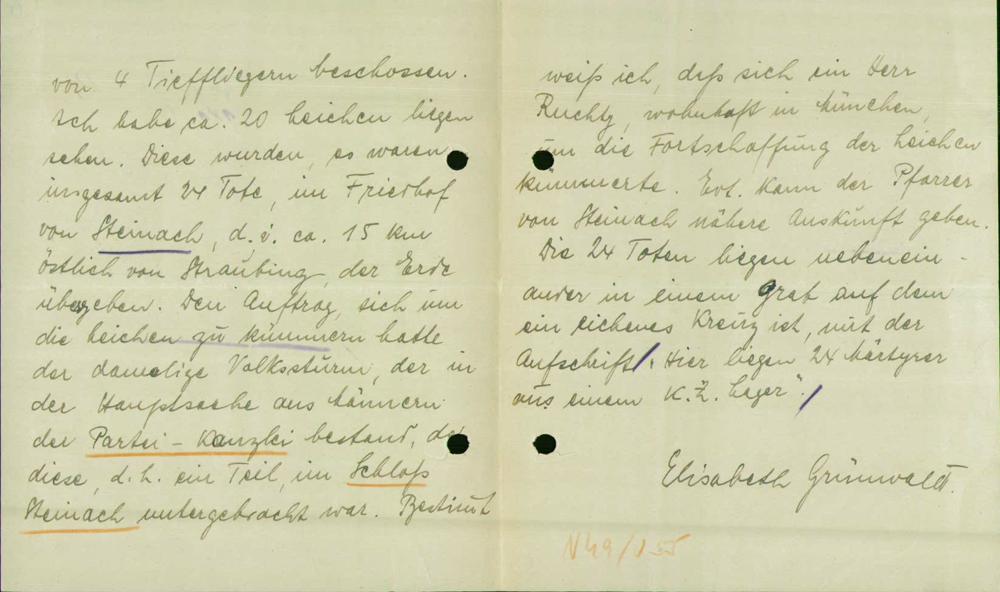 von 4 Tieffliegern beschossen.
Ich habe ca. 20 Leichen liegen
sehen. Diese wurden, es waren
insgesamt 24 Tote, im Friedhof
von Steinach, d. i. ca. 15 km
östlich von Straubing, der Erde
übergeben. Den Auftrag, sich um
die Leichen zu kümmern hatte
der damalige Volkssturm, der in
der Hauptsache aus Männern
der Partei-Kanzlei bestand, da
diese, d. h. ein Teil, im Schloß
Steinach untergebracht war. Bestimmt
weiß ich, daß sich ein Herr
Ruchty, wohnhaft in München,
um die Fortschaffung der Leichen
kümmerte. Evt. kann der Pfarrer
von Steinach nähere Auskunft geben.
Die 24 Toten liegen nebenein-
ander in einem Grab auf dem
ein eichenes Kreuz ist, mit der
Aufschrift: "Hier liegen 24 Märtyrer
aus einem K.Z. Lager".
Elisabeth Grünwald.